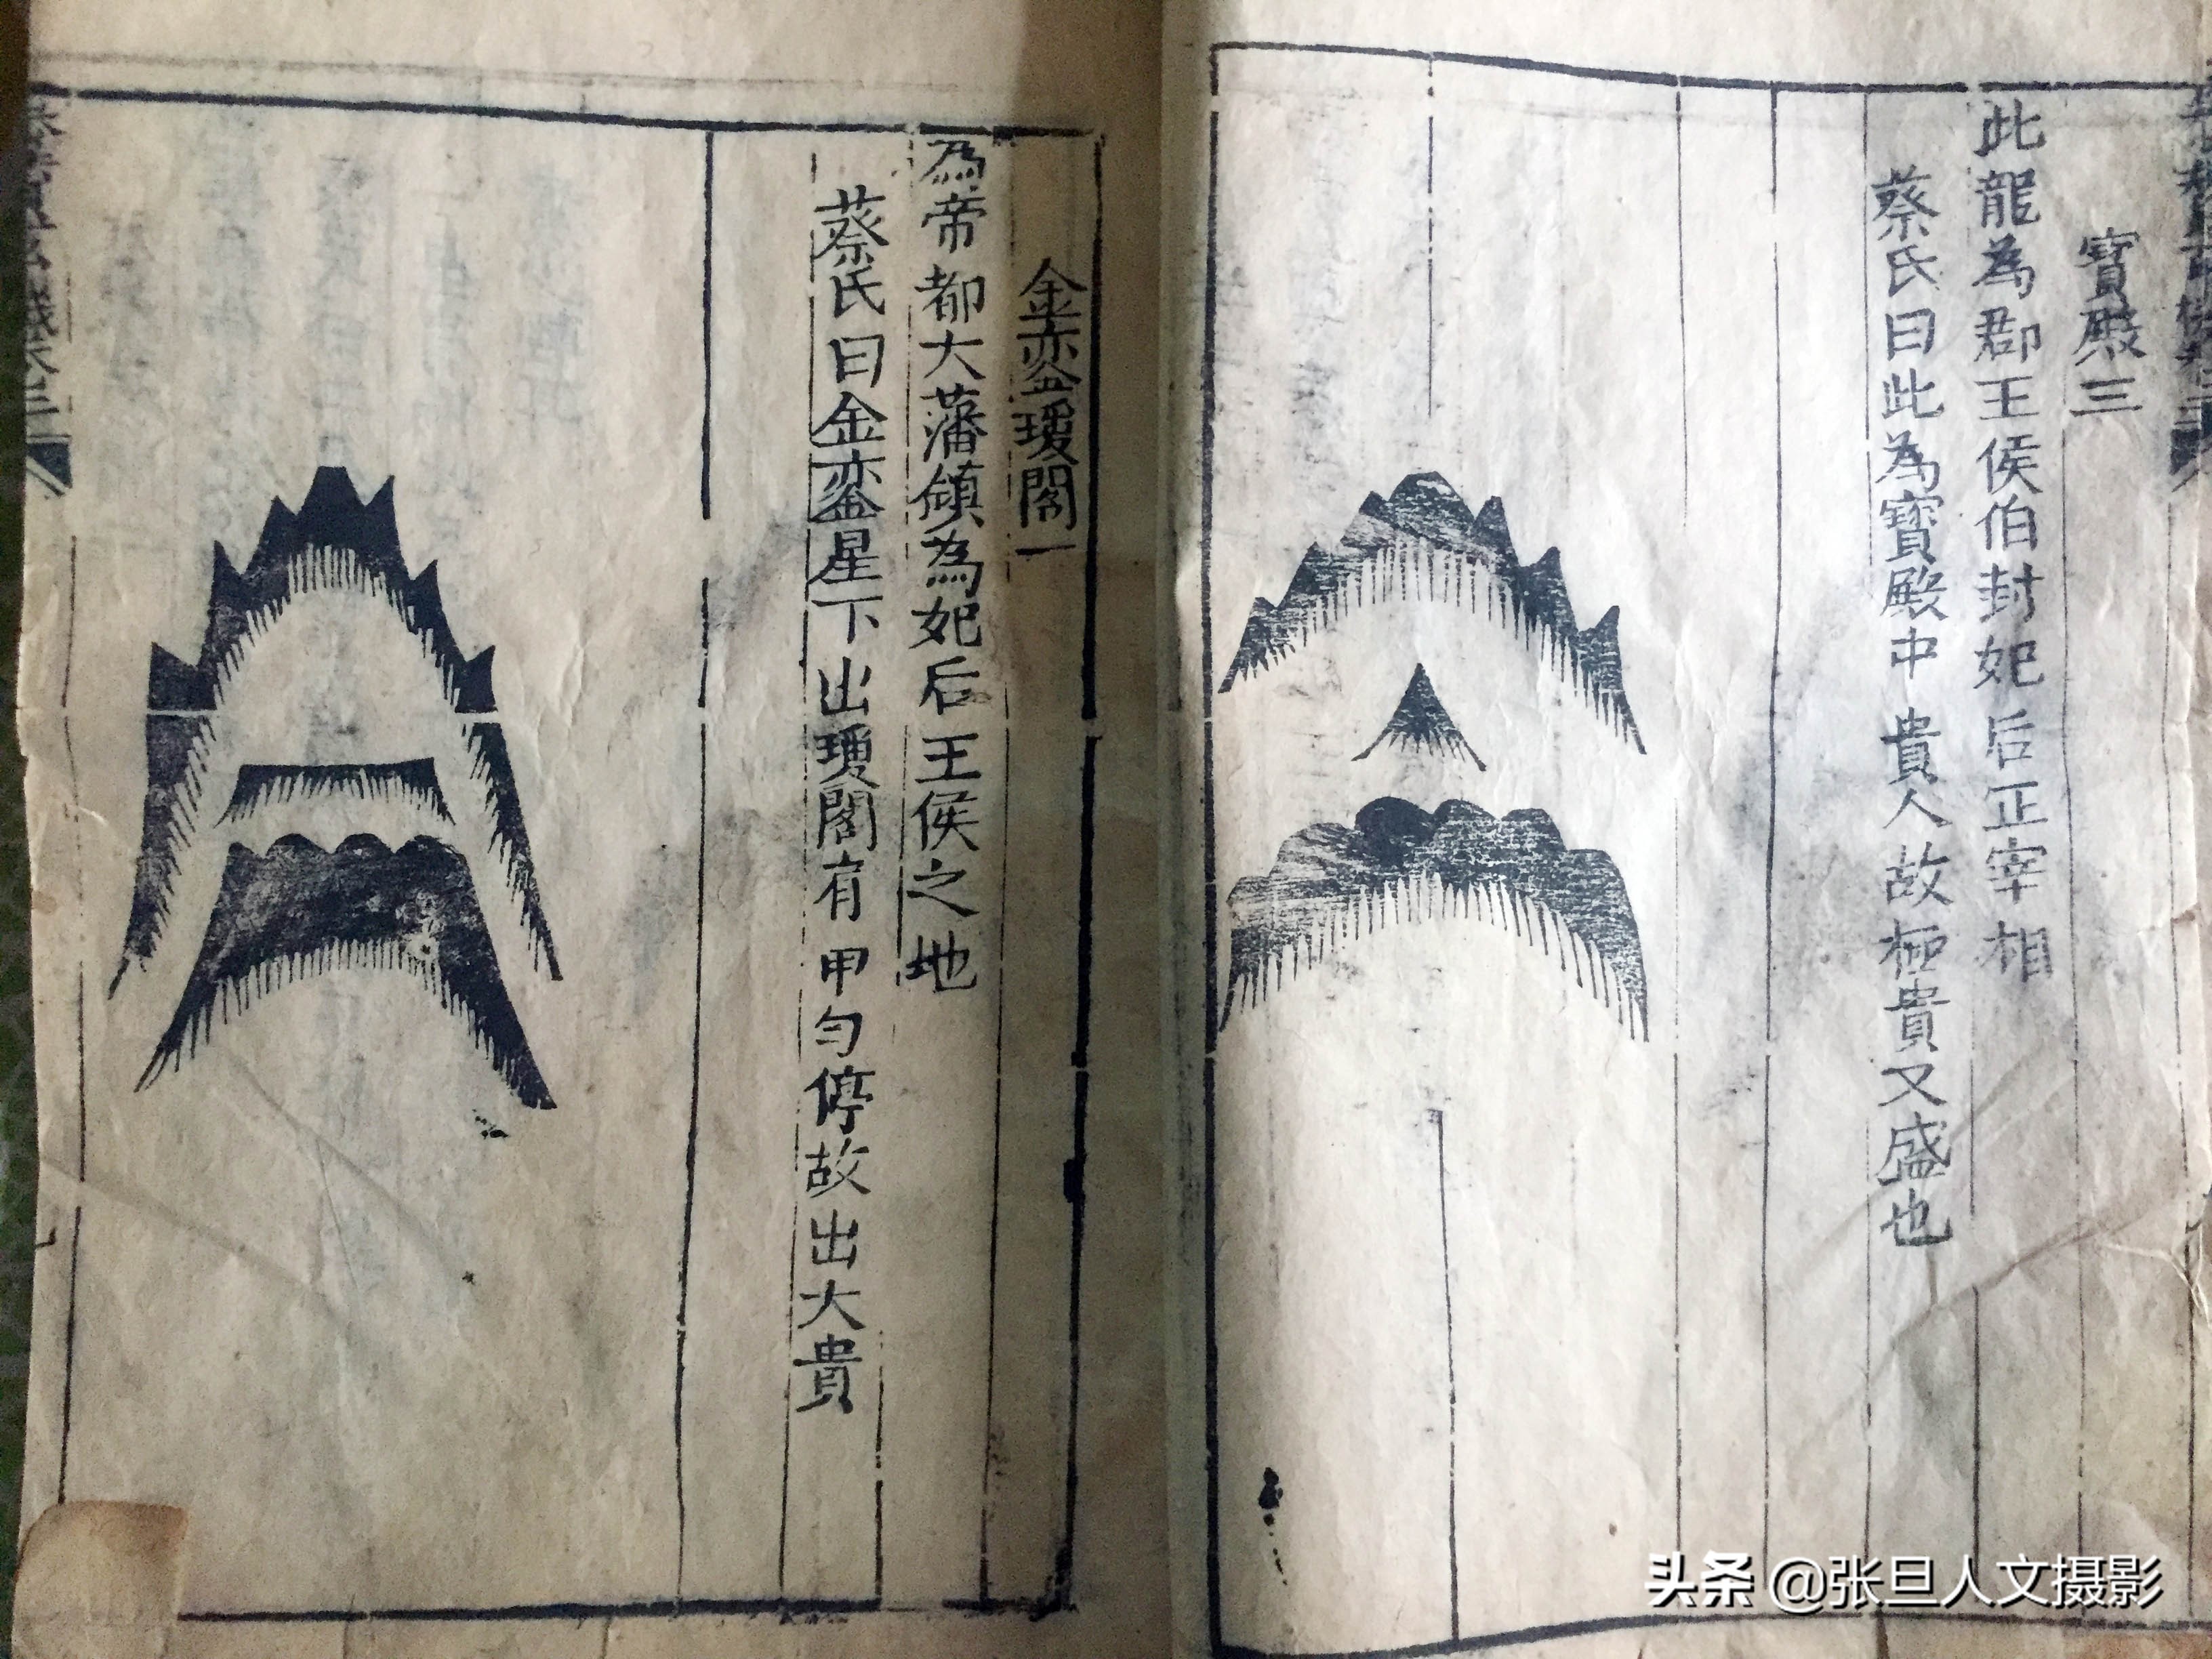 寶殿三
此龍為郡王侯伯封妃后正宰相
蔡氏曰此為寳殿中貴人故極貴又盛也
金銮瓊閣一
為帝都大藩鎮為妃后王侯之地
蔡氏曰金銮星下出瓊閣有甲匀停故出大貴
头条 @张旦人文摄影